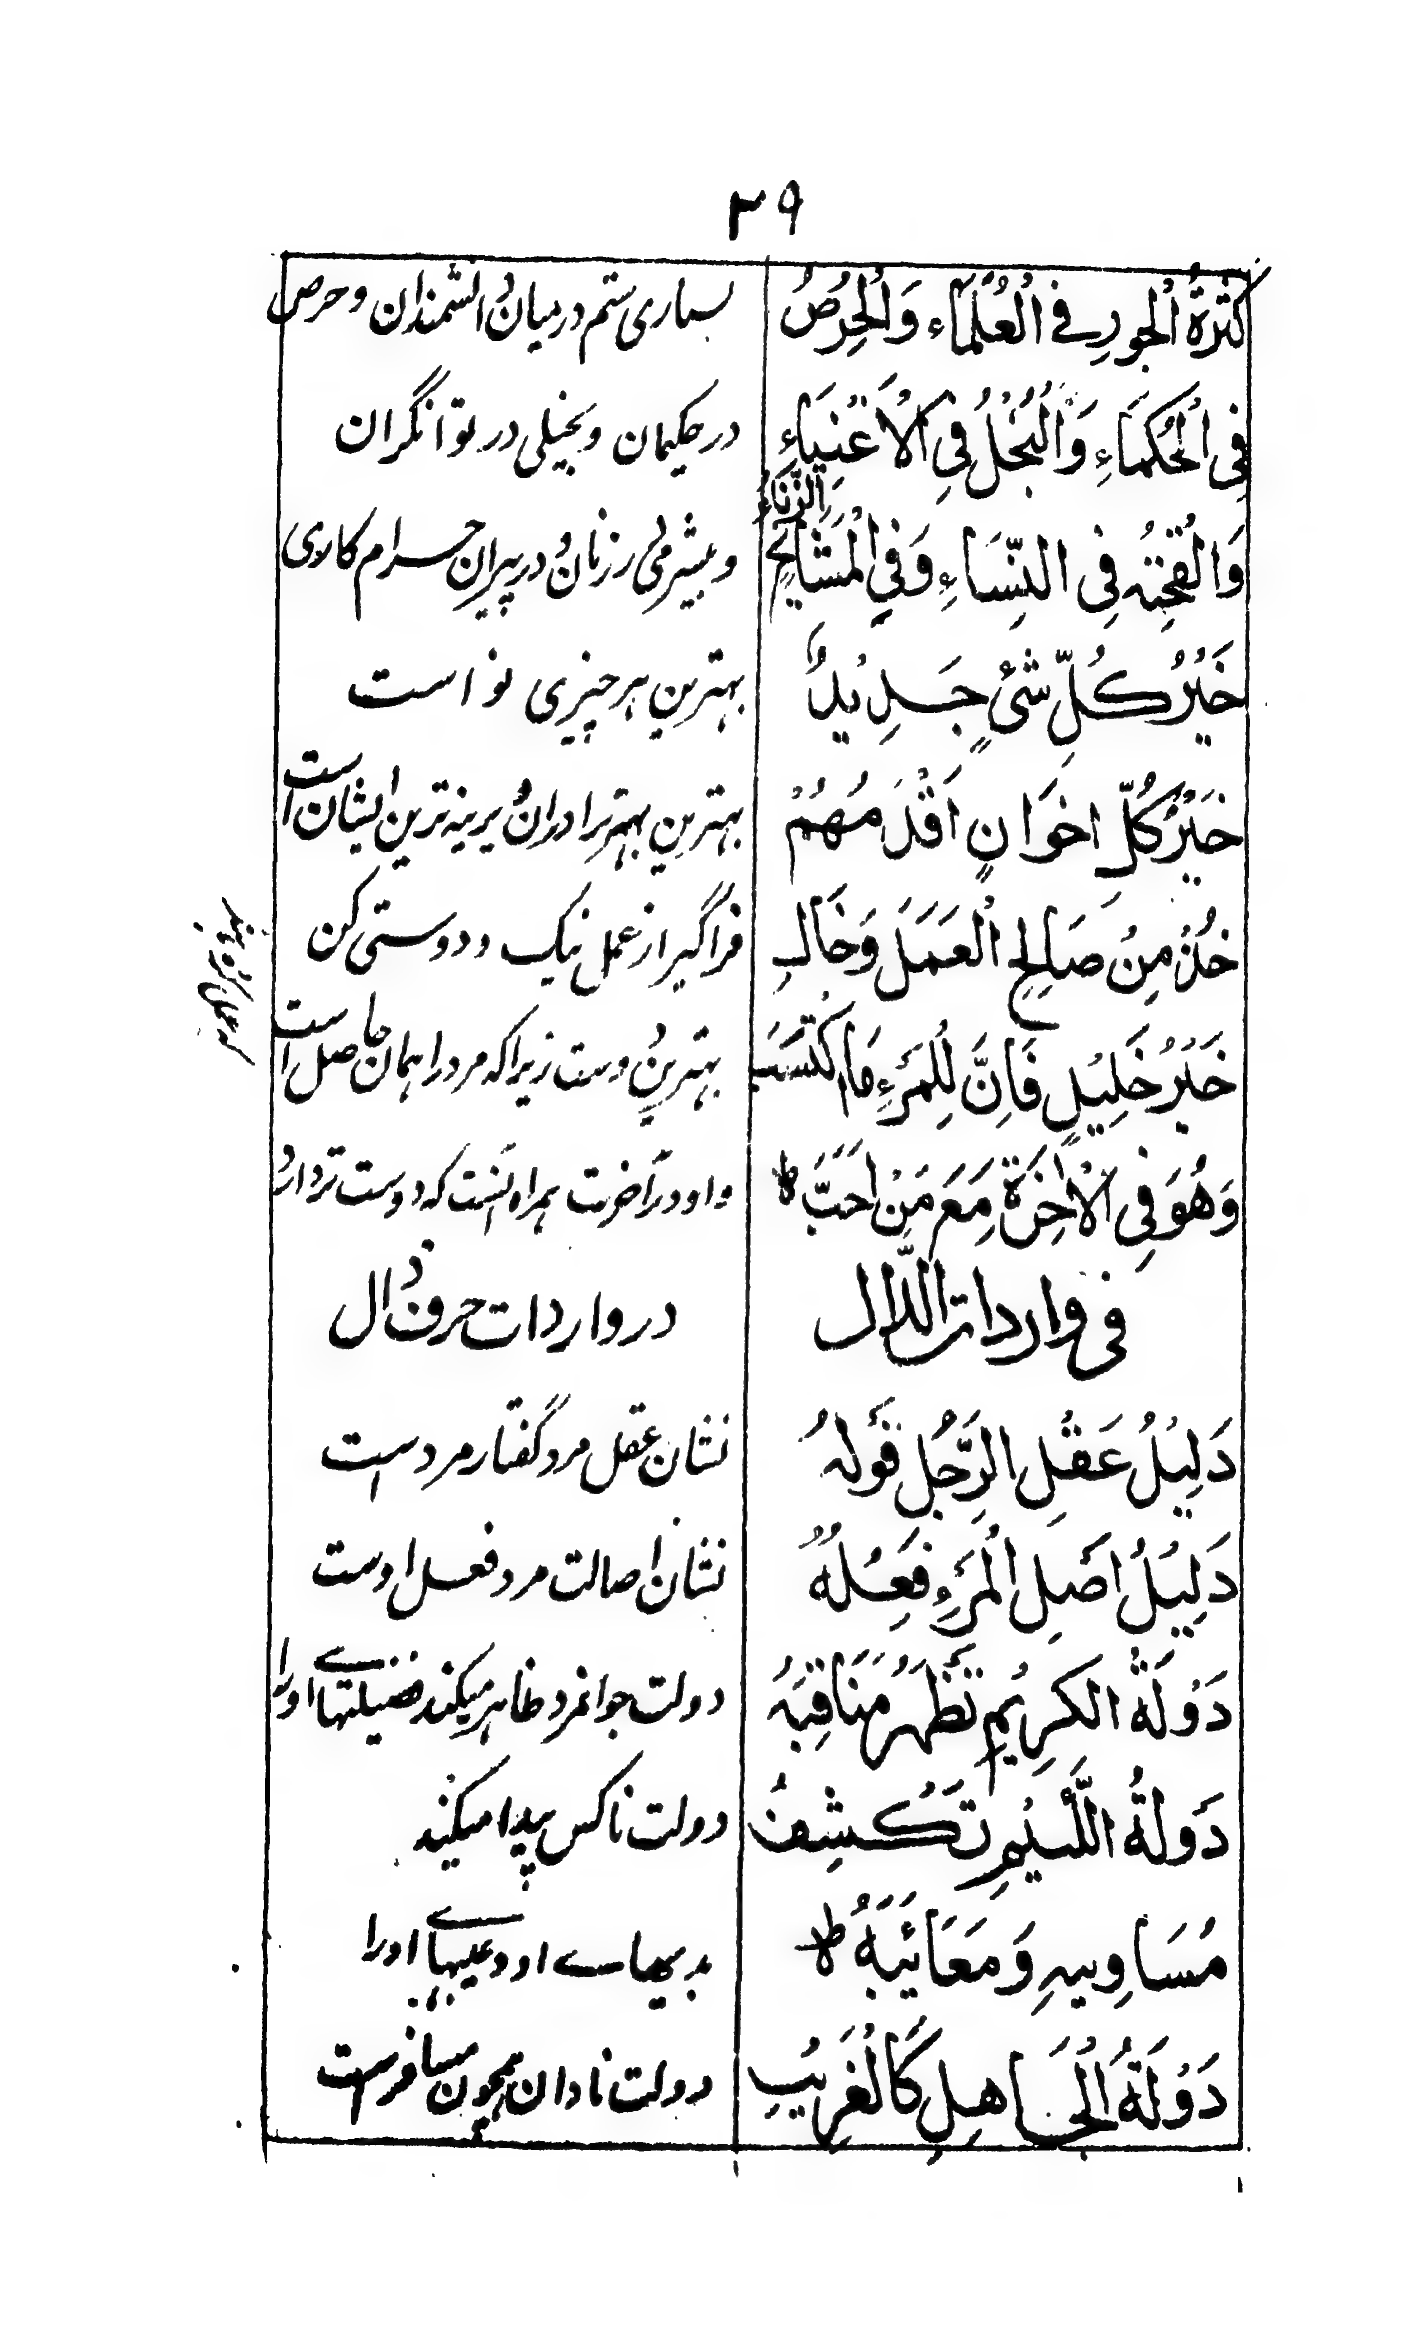 ۲۹
كَثْرَةُ الْجَورِ فے الْعُلَمَاء وَالْحِرْصُ
بسیاری ستم درمیان دانشمندان و حرص
فِی الْحُكَمَاءِ وَالْبُخْلُ فِی الْاَغْنِيَاءِ
در حکیمان و بخیلی در توانگران
وَالْقحِتہُ فِی النِّسَاءِ وَفِی الْمَشَائِخِ الزِّنَاءُ
و بیشرمی در زنان و در پیران حرام کاری
خَيْرُ كُلِّ شَیْءٍ جَدِيْدُہٗ
بہترین ہر چیزی نو است
خَيْرُ كُلِّ اخْوَانٍ اَقْدَمُهُمْ
بہترین بہتر برادران دیرینہ ترین ایشان است
خُذْ مِنْ صَالِحِ الْعَمَلِ وَخَالِـ
فراگیر از عمل نیک و دوستی کن
خَيْرَ خَلِيْلٍ فَاِنَّ لِلْمَرْءِ مَا اكْتَسَبَ
بہترین دوست زیرا کہ مرد را ہمان حاصل است
وَهُوَ فِی الْاٰخِرَةِ مَعَ مَنْ اَحَبَّ ط
و او در آخرت ہمراہ آنست کہ دوست تر دارد
فی واردات الدال
در واردات حرف دال
دَلِيْلُ عَقْلِ الرَّجُلِ قَولہُ
نشان عقل مرد گفتار مردست
دَلِيْلُ اَصْلِ الْمَرْءِ فِعْلُهٗ
نشان اصالت مرد فعل اوست
دَوْلَةُ الكَرِيْمِ تَظْهَرُ مَنَاقِبَہُ
دولت جوانمرد ظاہر میکند فضیلتہاے اورا
دَولَةُ اللَّئِيْمِ تَكْشِفُ
دولت ناکس پیدا میکند
مَسَاوِيہِ وَمَعَائِبَهُ ط
بدیہاے او و عیبہاے اورا
دَوْلَةُ الْجَاهِلِ كَالْغَرِيْبِ
دولت نادان ہمچون مسافرست